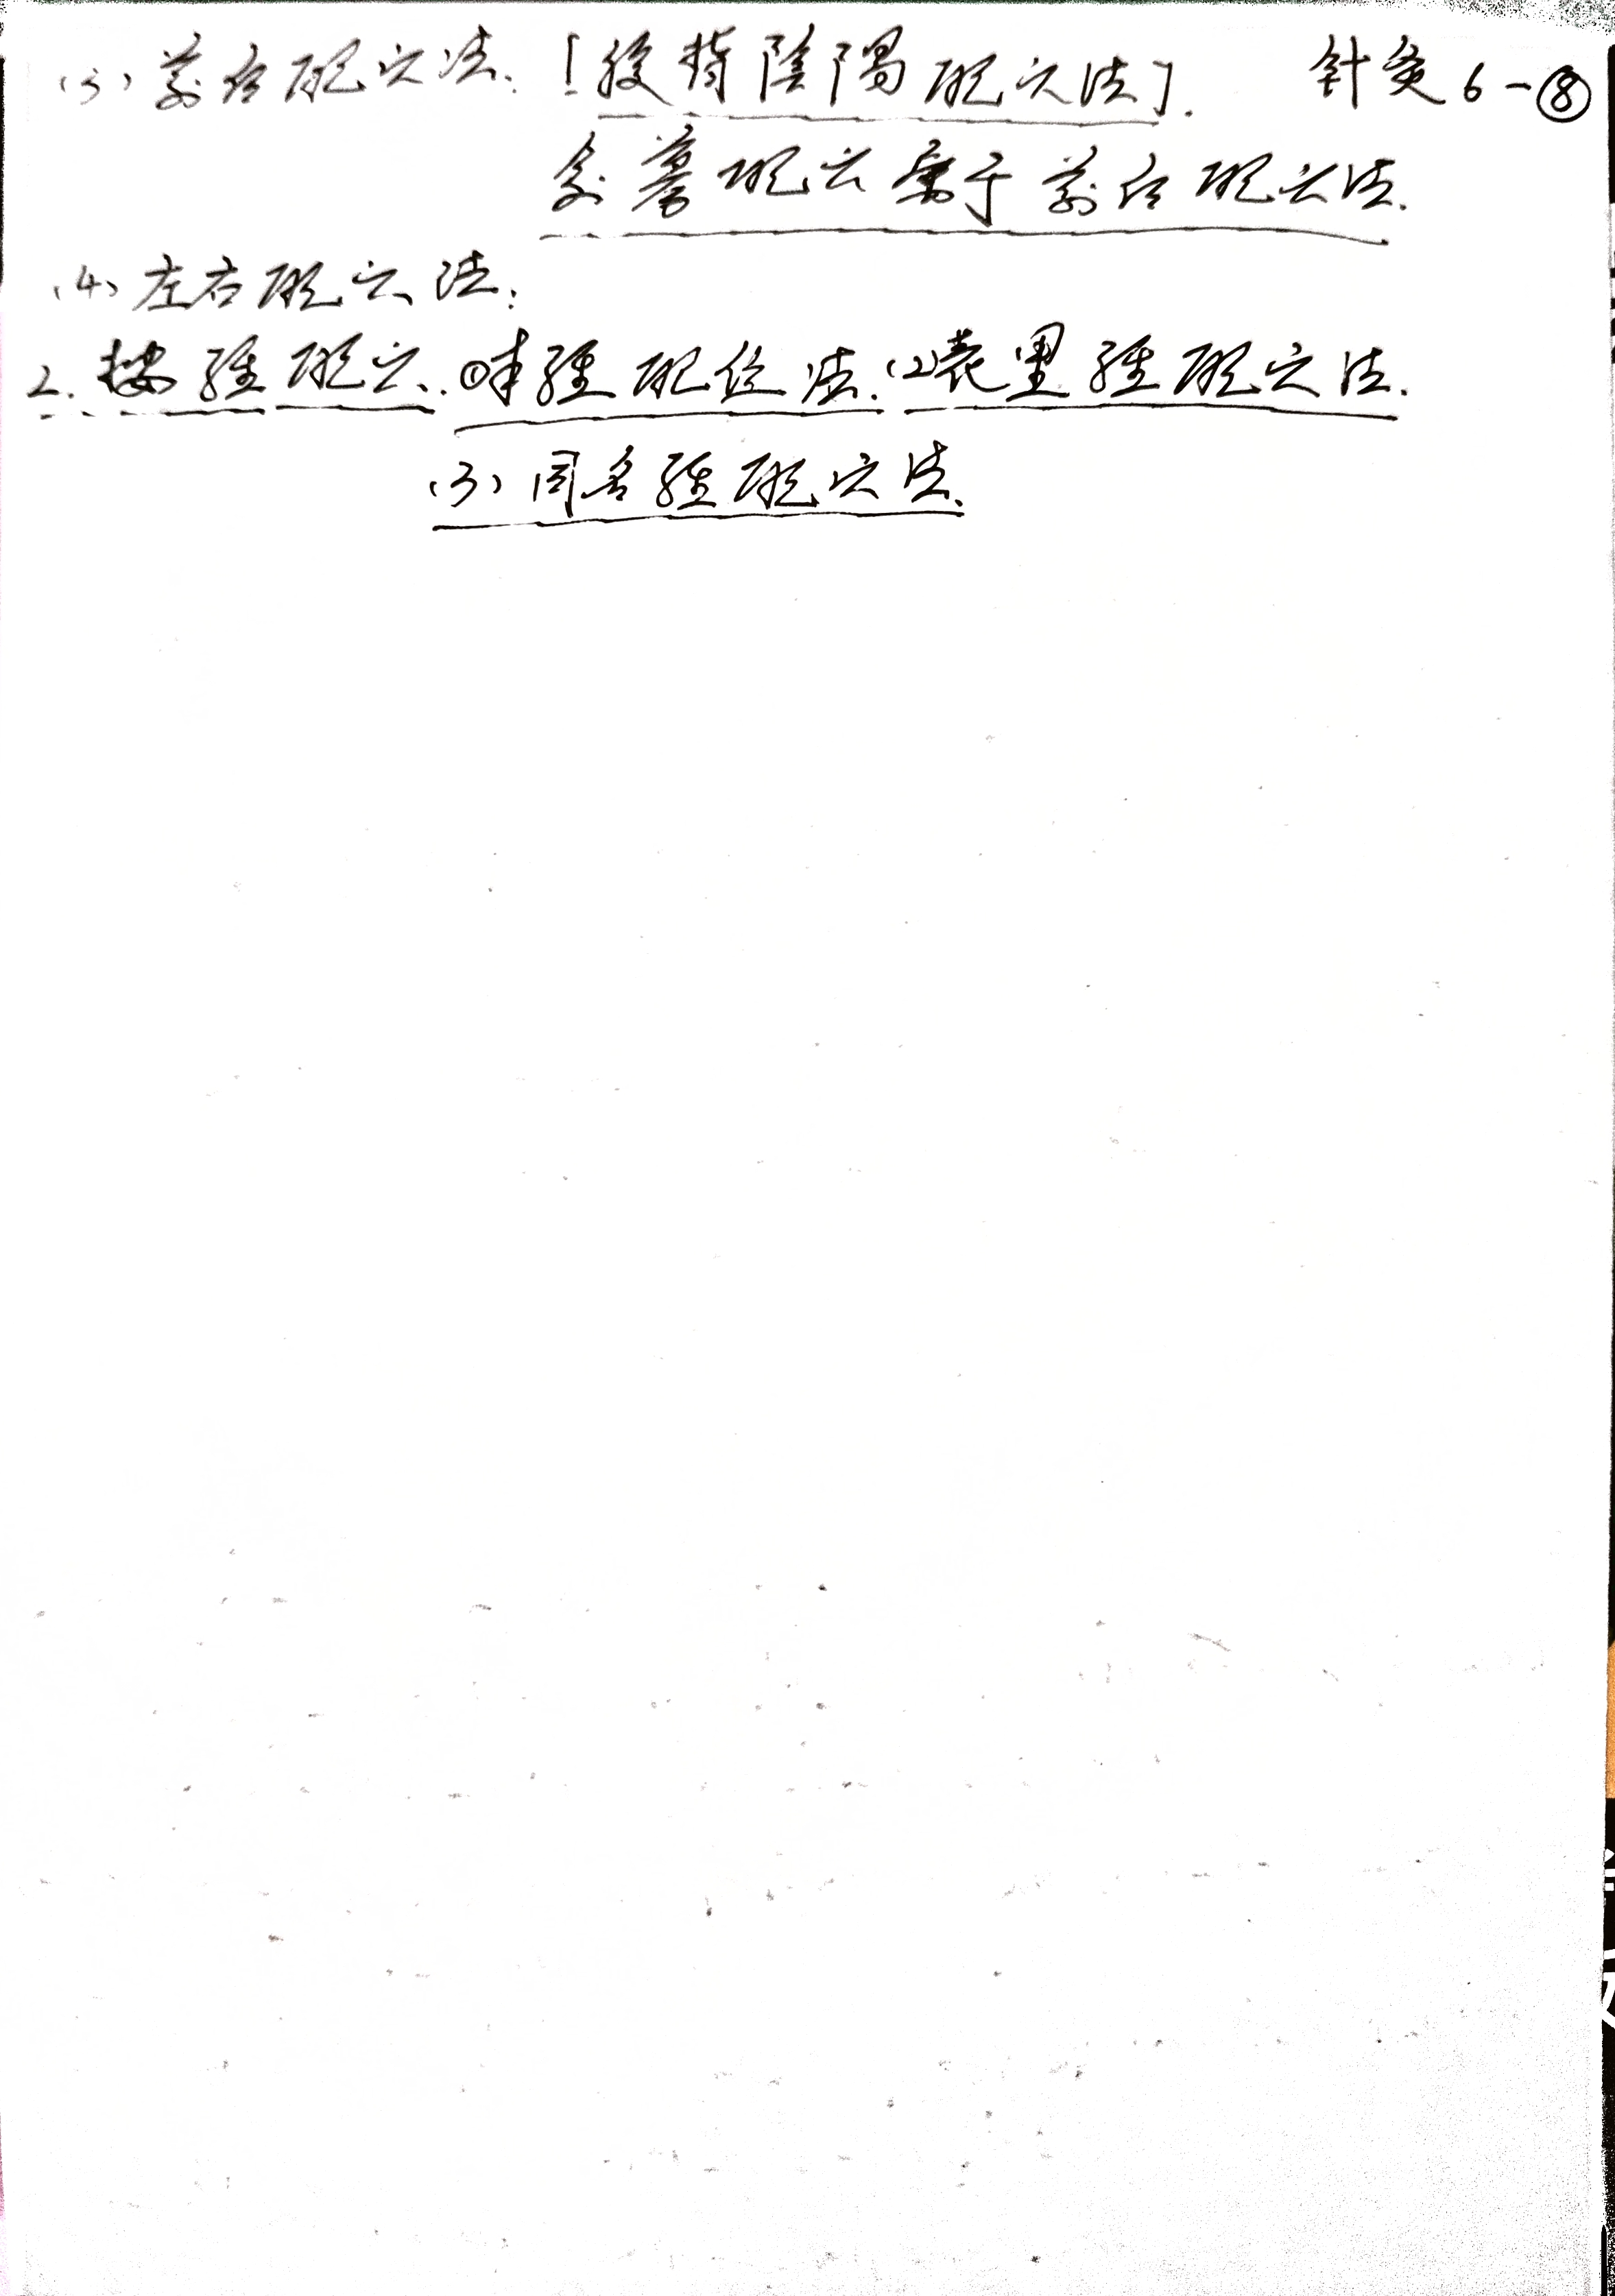 (3) 前后配穴法.「腹背陰陽配穴法」. 针灸6-⑧
俞募配穴属于前后配穴法.
(4) 左右配穴法:
2. 按經配穴. ①本經配位法. (2)表里經配穴法.
(3) 同名經配穴法.